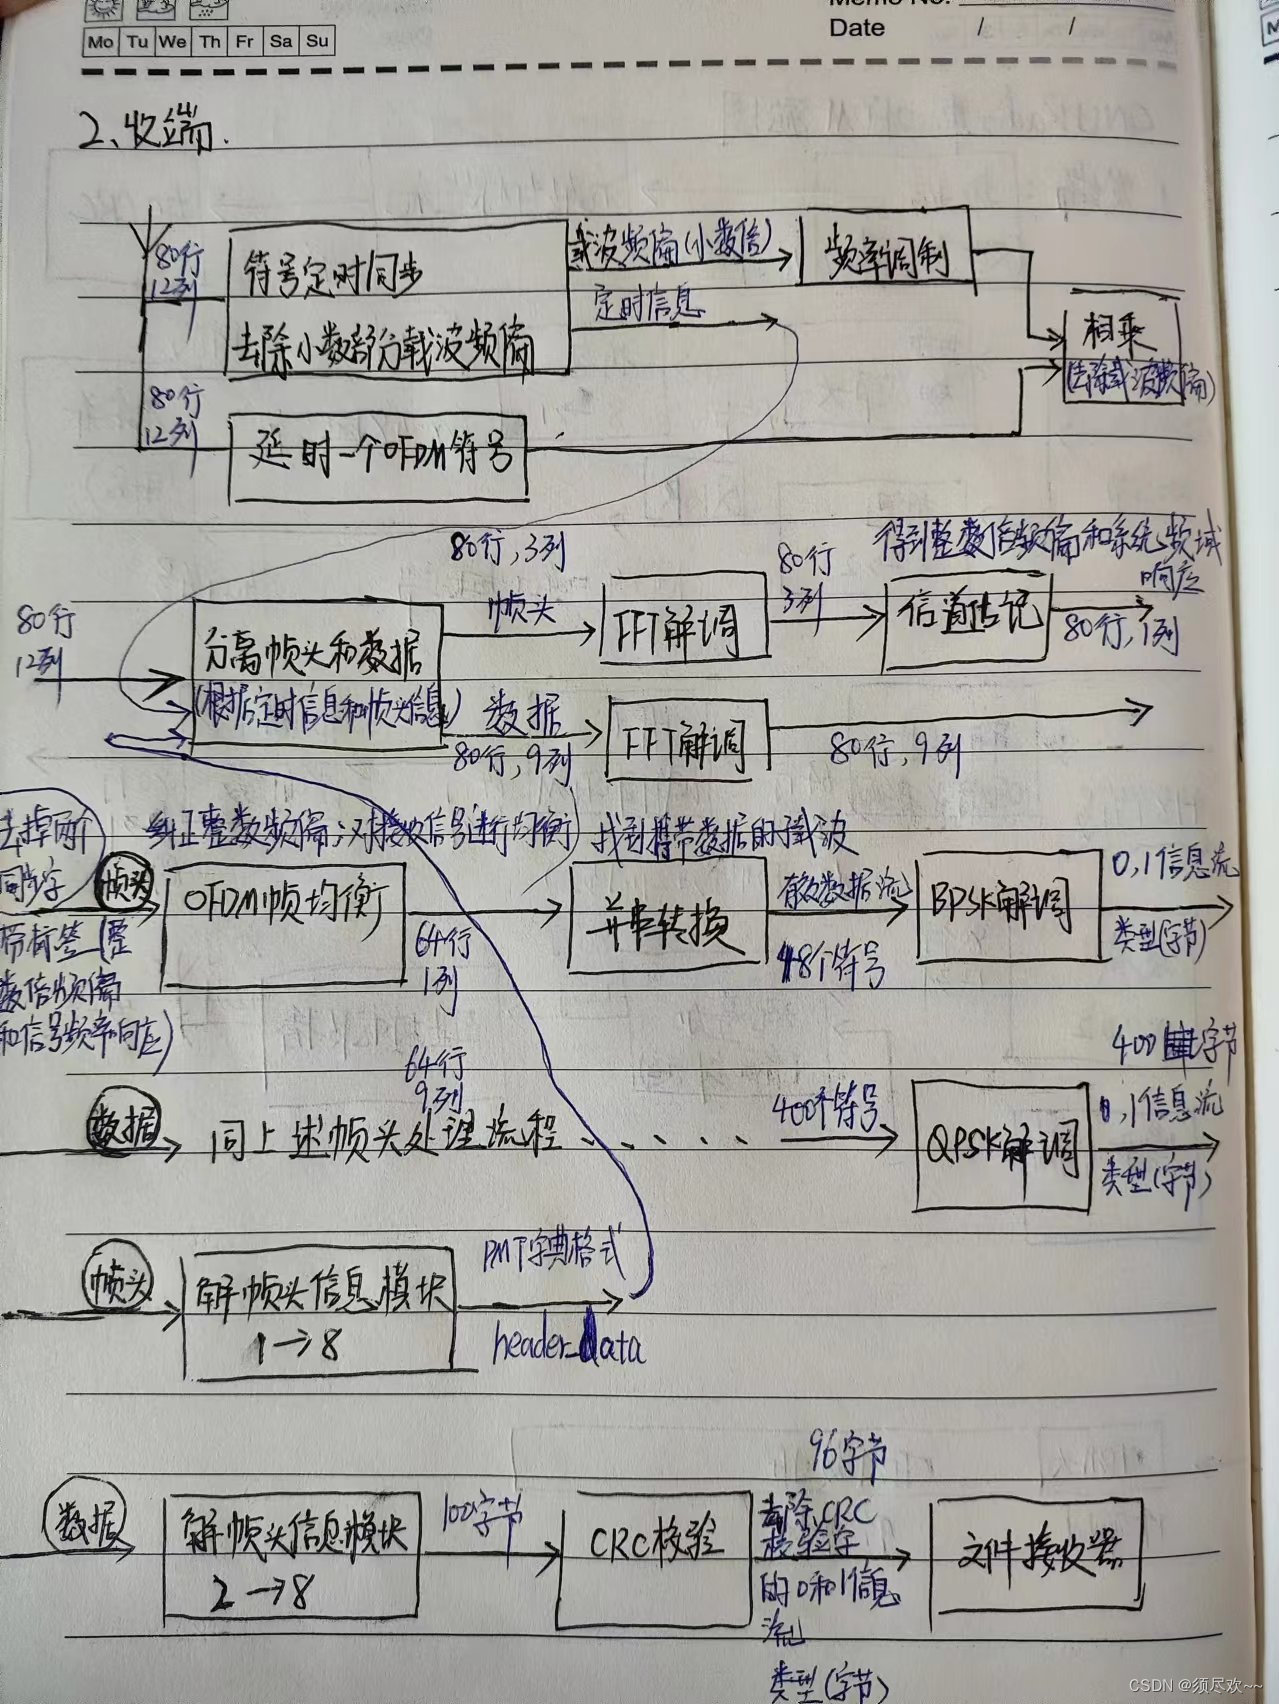 Memo No.
Mo Tu We Th Fr Sa Su
Date / /
2、收端.
80行
12列
符号定时同步
去除小数部分载波频偏
载波频偏(小数倍)
定时信息
频率调制
相乘
(去除载波频偏)
80行
12列
延时一个OFDM符号
80行
12列
分离帧头和数据
(根据定时信息和帧头信息)
80行,3列
帧头
FFT解调
80行
3列
得到整数倍频偏和系统频域
响应
信道估记
80行,1列
数据
80行,9列
FFT解调
80行,9列
去掉两个
同步字
帧头
带标签(整
数倍频偏
和信号频率响应)
纠正整数频偏;对接收信号进行均衡
OFDM帧均衡
64行
1列
找到携带数据的载波
并串转换
有效数据流
48个符号
BPSK解调
0,1信息流
类型(字节)
数据
64行
9列
同上述帧头处理流程
400个符号
QPSK解调
400字节
0,1信息流
类型(字节)
帧头
解帧头信息模块
1→8
PMT字典格式
header_data
数据
解帧头信息模块
2→8
100字节
CRC校验
96字节
去除CRC
校验字
的0和1信息
流
类型(字节)
文件接收器
CSDN @须尽欢~~